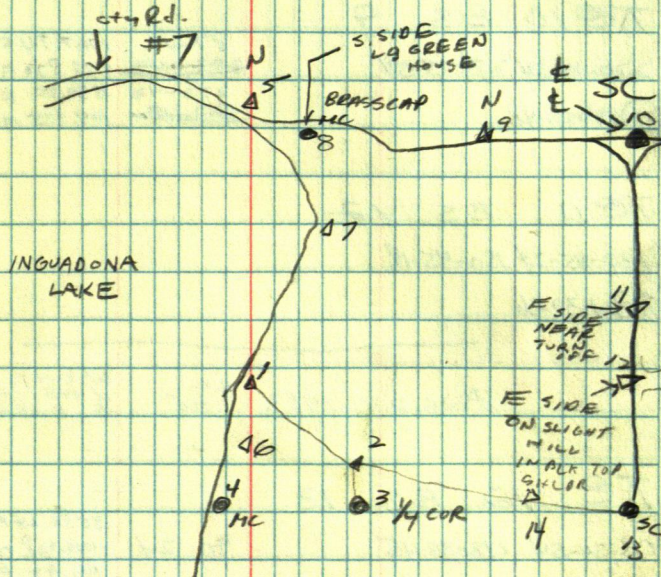 cty Rd.
#7
N
5
S. SIDE
LG GREEN
HOUSE
BRASSCAP
MC
8
N
9
SC
10
7
INGUADONA
LAKE
E SIDE
NEAR
TURN
OFF
11
12
1
E SIDE
ON SLIGHT
HILL
IN BLK TOP
SHLDR
6
2
4
MC
3
1/4 COR
14
SC
13